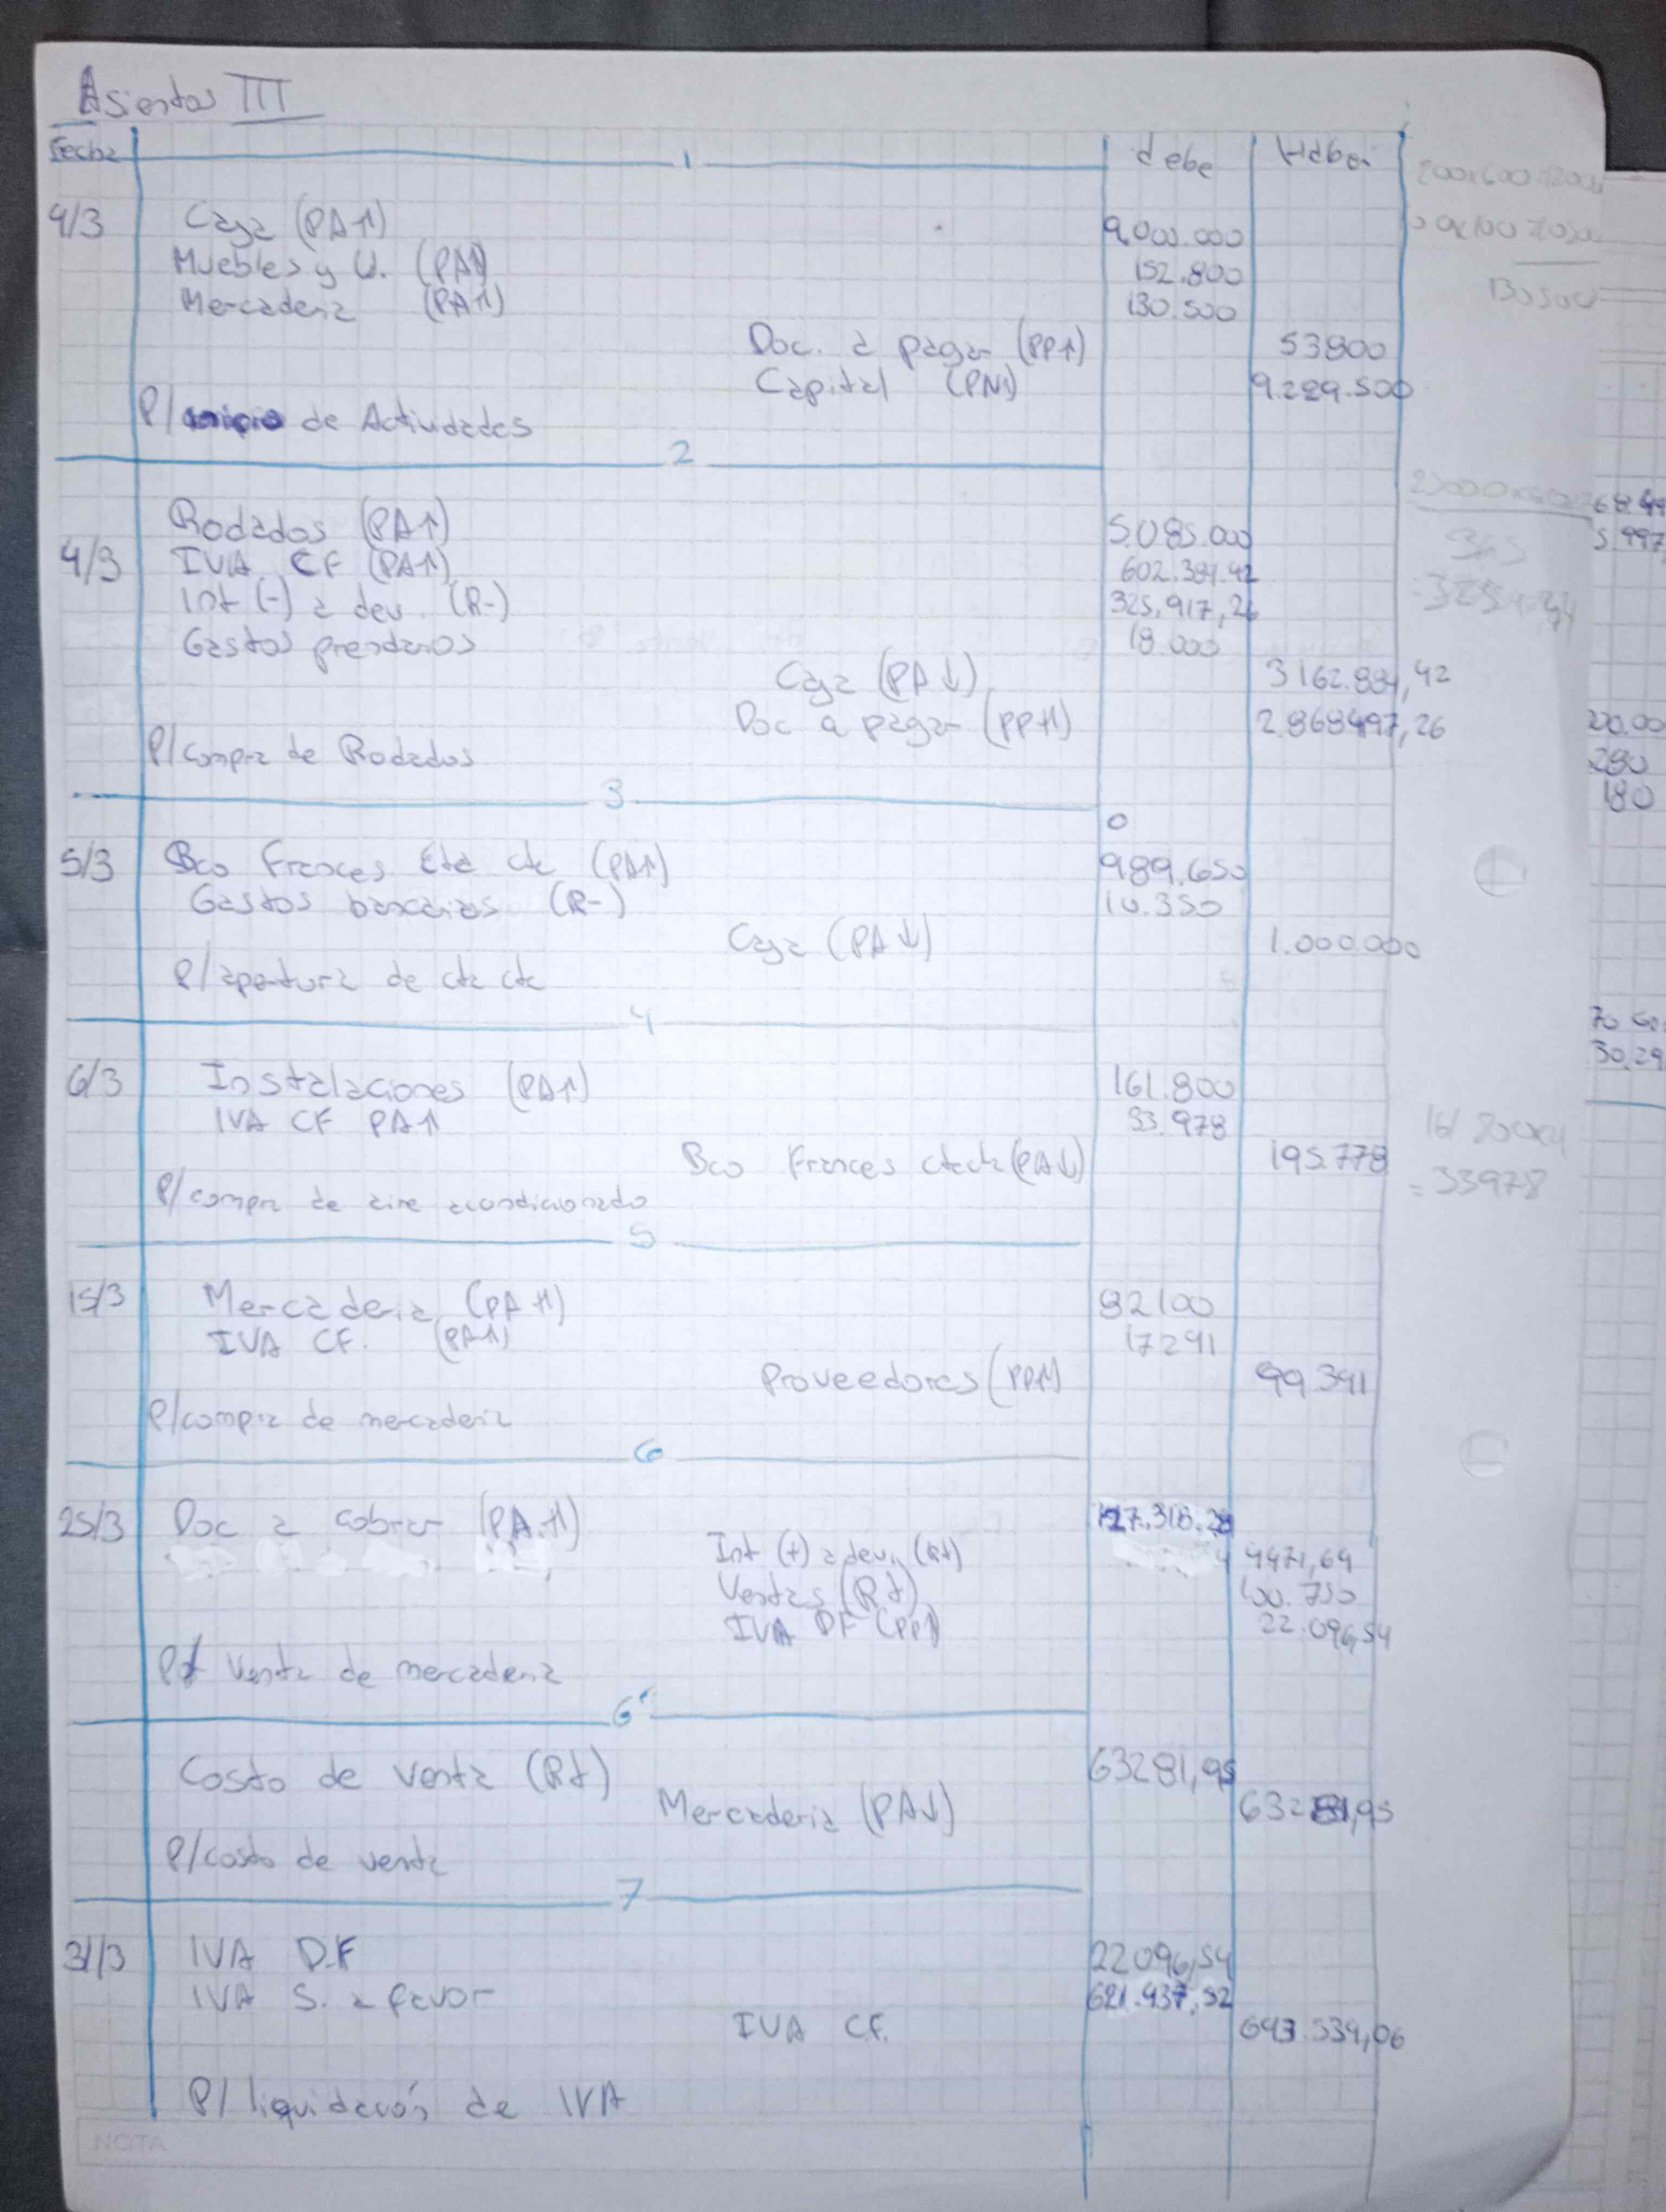 Asientos III
Fecha 1 debe Haber
4/3 Caja (PA↑) 9.000.000
Muebles y U. (PA↑) 152.800
Mercaderia (PA↑) 130.500
Doc. a pagar (PP↑) 53800
Capital (PN↑) 9.229.500
P/ inicio de Actividades
2
Rodados (PA↑) 5.085.000
4/3 IVA CF (PA↑)
Int (-) a dev. (R-) 325.917,26
Gastos prendarios 18.000
Caja (PA↓)
Doc a pagar (PP↑) 2.868497,26
P/compra de Rodados
3
0
5/3 Bco Frances Cta cte (PA↑) 989.650
Gastos bancarios (R-) 10.350
Caja (PA↓) 1.000.000
P/apertura de cta cte
4
6/3 Instalaciones (PA↑) 161.800
IVA CF PA↑ 33.978
Bco Frances ctacte (PA↓) 195.778
P/compra de aire acondicionado
= 33978
5
15/3 Mercaderia (PA↑) 82100
IVA CF. (PA↑) 17291
Proveedores (PP↑) 99391
P/compra de mercaderia
6
25/3 Doc a cobrar (PA↑)
Int (+) a dev. (R+) 4471,64
Ventas (R+) 100.750
IVA DF (PP↑) 22.096,54
P/ Venta de mercaderia
6'
Costo de venta (R+) 63281,95
Mercaderia (PA↓) 63281,95
P/costo de venta
7
31/3 IVA D.F 22096,54
IVA S. a favor 621.437,52
IVA C.F. 643.534,06
P/ liquidación de IVA
NOTA
130500
365